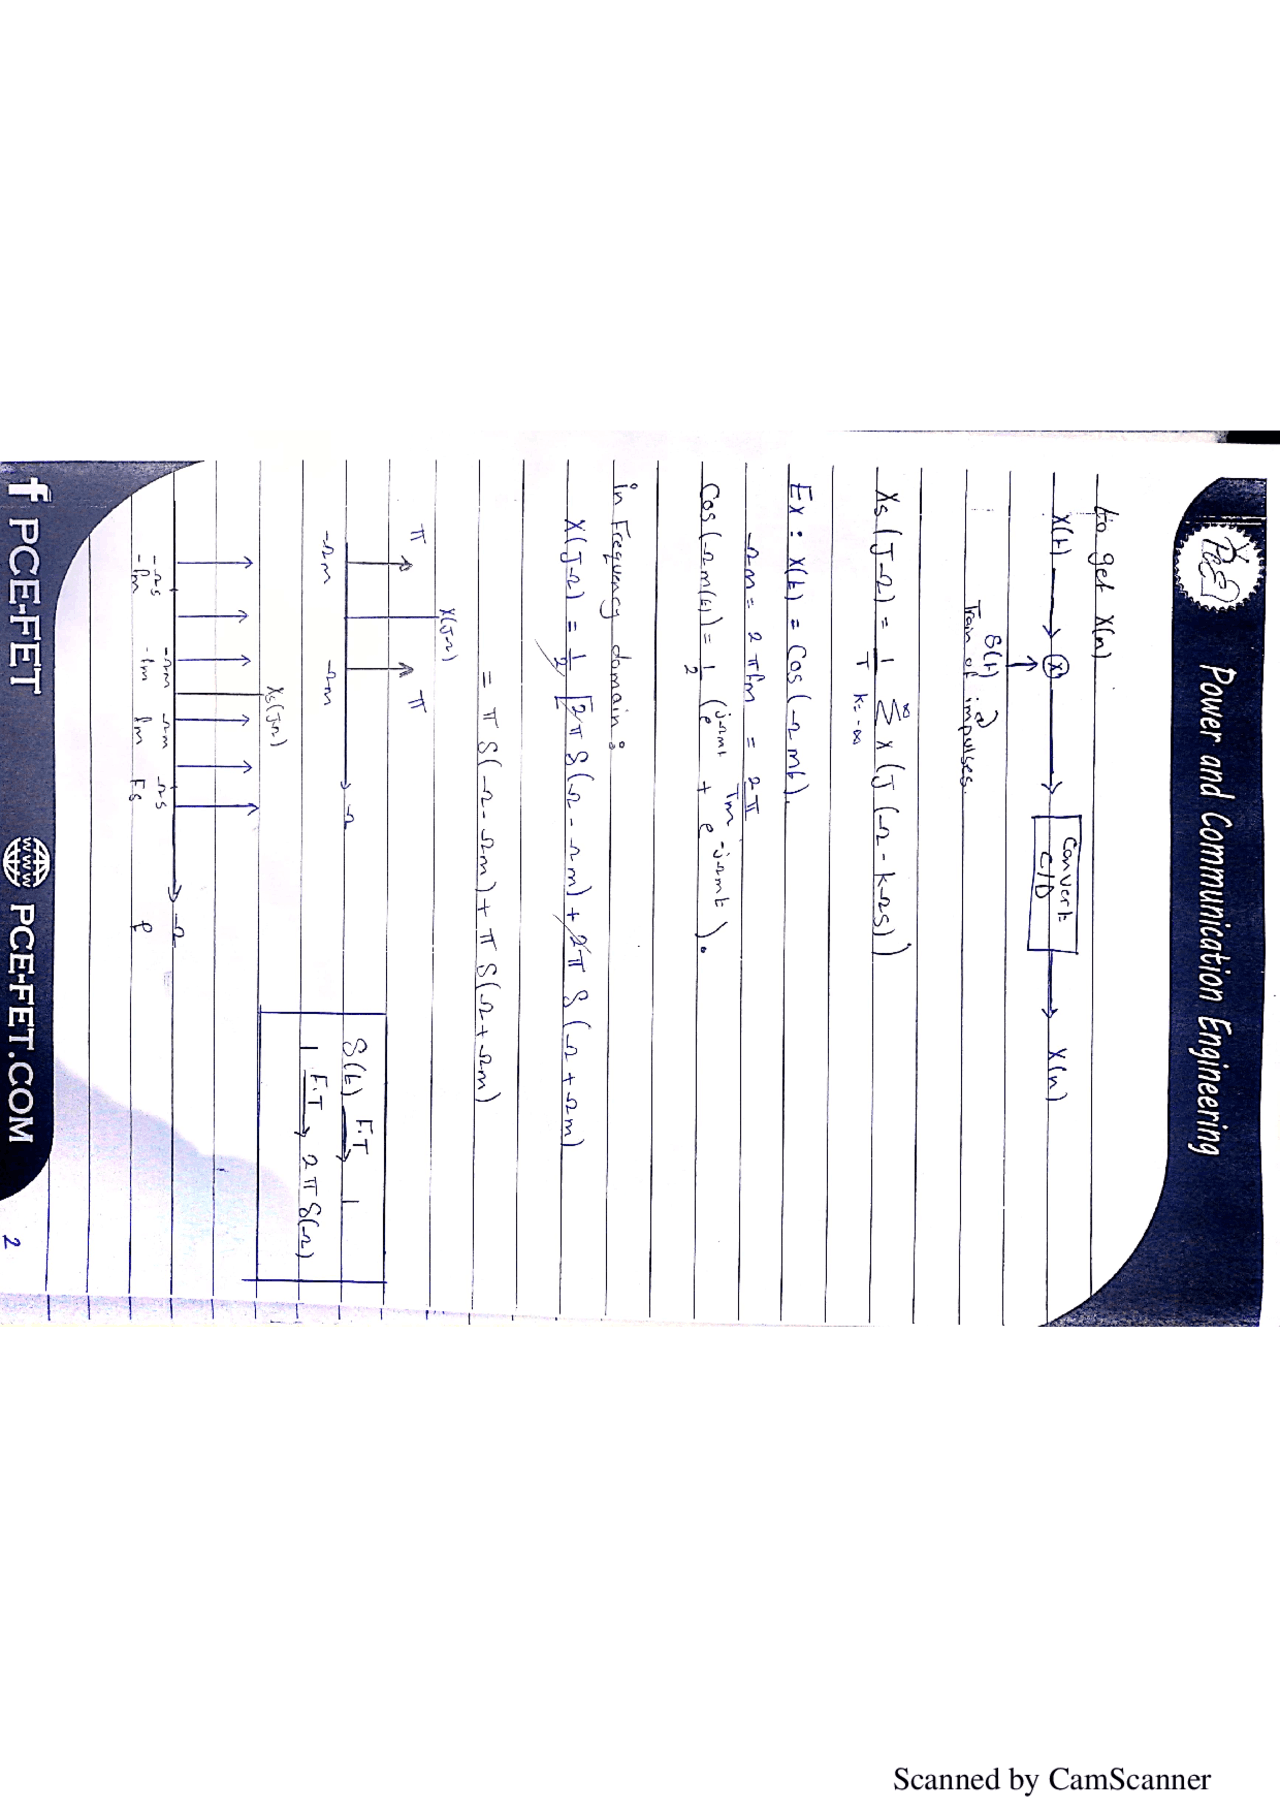 Power and Communication Engineering
to get X(n)
X(t) → ⊗ → Convert C/D → X(n)
S(t)
Train of impulses.
Xs(J Ω) = 1/T ∑ k=-∞ ∞ X(J(Ω - kΩs))
Ex: X(t) = Cos(Ωmt).
Ωm = 2πfm = 2π/Tm
Cos(Ωm(t)) = 1/2 (e^jΩmt + e^-jΩmt).
in Frequency domain:
X(JΩ) = 1/2 [2π δ(Ω - Ωm) + 2π δ(Ω + Ωm)
= π δ(Ω - Ωm) + π δ(Ω + Ωm)
X(JΩ)
π π
-Ωm Ωm Ω
δ(t) F.T → 1
1 F.T → 2π δ(Ω)
Xs(JΩ)
-Ωs -Ωm Ωm Ωs Ω
-fm -fm fm Fs f
f PCE-FET WWW PCE-FET.COM
2
Scanned by CamScanner